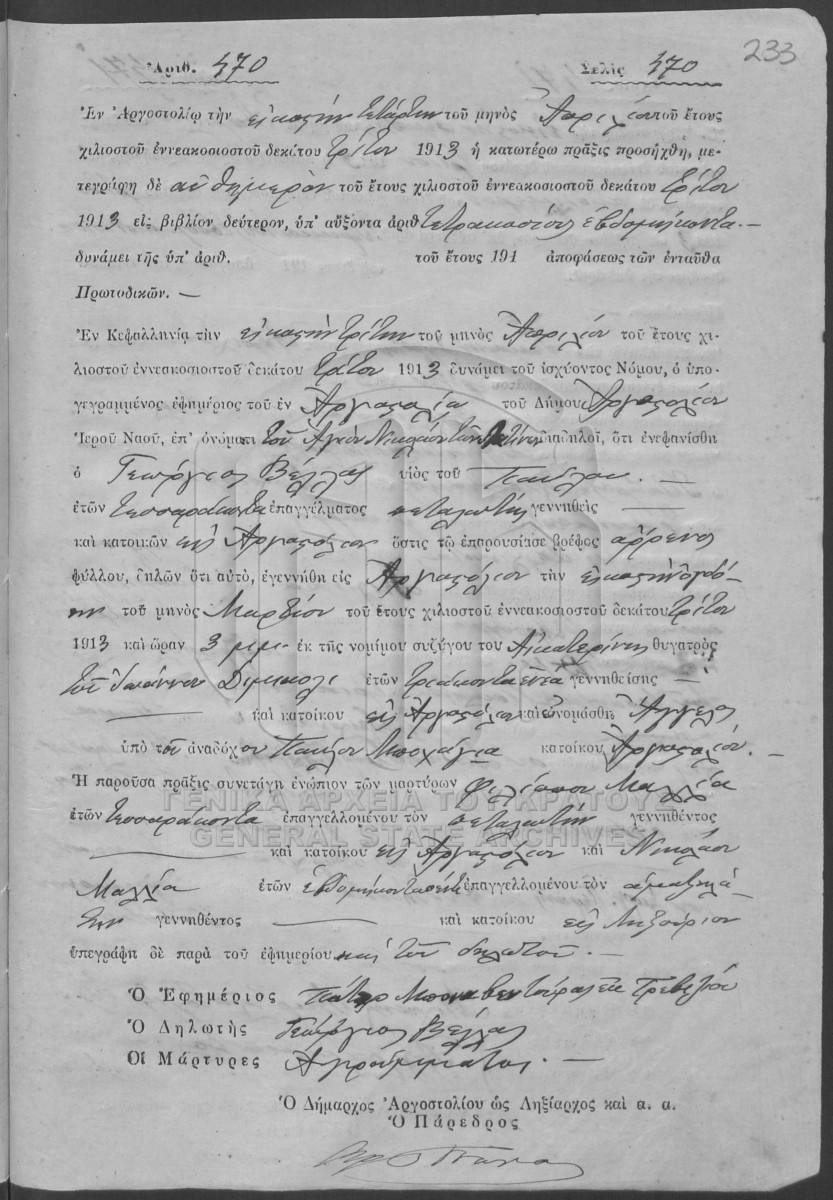 233
Ἀριθ. 470 Σελὶς 470
Ἐν Ἀργοστολίῳ τὴν εἰκοστὴν τετάρτην τοῦ μηνὸς Ἀπριλίου τοῦ ἔτους
χιλιοστοῦ ἐννεακοσιοστοῦ δεκάτου τρίτου 1913 ἡ κατωτέρω πρᾶξις προσήχθη, με-
τεγράφη δὲ αὐθημερὸν τοῦ ἔτους χιλιοστοῦ ἐννεακοσιοστοῦ δεκάτου τρίτου
1913 εἰς βιβλίον δεύτερον, ὑπ' αὔξοντα ἀριθ τετρακόσια ἑβδομήκοντα.—
δυνάμει τῆς ὑπ' ἀριθ. τοῦ ἔτους 191 ἀποφάσεως τῶν ἐνταῦθα
Πρωτοδικῶν. —
Ἐν Κεφαλληνίᾳ τὴν εἰκοστὴν τρίτην τοῦ μηνὸς Ἀπριλίου τοῦ ἔτους χι-
λιοστοῦ ἐννεακοσιοστοῦ δεκάτου τρίτου 1913 δυνάμει τοῦ ἰσχύοντος Νόμου, ὁ ὑπο-
γεγραμμένος ἐφημέριος τοῦ ἐν Ἀργοστολίῳ τοῦ Δήμου Ἀργοστολίου
Ἱεροῦ Ναοῦ, ἐπ' ὀνόματι τοῦ Ἁγίου Νικολάου τῶν Λατίνων διαδηλοῖ, ὅτι ἐνεφανίσθη
ὁ Γεώργιος Βέλλας υἱὸς τοῦ Παύλου. —
ἐτῶν τεσσαράκοντα ἐπαγγέλματος πεταλωτὴς γεννηθεὶς —
καὶ κατοικῶν εἰς Ἀργοστόλιον ὅστις τῷ ἐπαρουσίασε βρέφος ἄρρενος
φύλλου, δηλῶν ὅτι αὐτὸ, ἐγεννήθη εἰς Ἀργοστόλιον τὴν εἰκοστὴν ὀγδό-
ην τοῦ μηνὸς Μαρτίου τοῦ ἔτους χιλιοστοῦ ἐννεακοσιοστοῦ δεκάτου τρίτου
1913 καὶ ὥραν 3 μ.μ. ἐκ τῆς νομίμου συζύγου του Αἰκατερίνης θυγατρὸς
τοῦ Ἰωάννου ἐτῶν τριάκοντα ἐννέα γεννηθείσης —
— καὶ κατοίκου εἰς Ἀργοστόλιον καὶ ὠνομάσθη Ἄγγελος
ὑπὸ τοῦ ἀναδόχου Παύλου κατοίκου Ἀργοστολίου. —
Ἡ παροῦσα πρᾶξις συνετάγη ἐνώπιον τῶν μαρτύρων Φιλίππου Μαλλία
ἐτῶν τεσσαράκοντα ἐπαγγελλομένου τὸν πεταλωτὴν γεννηθέντος
— καὶ κατοίκου εἰς Ἀργοστόλιον καὶ Νικολάου
Μαλλία ἐτῶν ἑβδομήκοντα πέντε ἐπαγγελλομένου τὸν ἁμαξηλά-
την γεννηθέντος — καὶ κατοίκου εἰς Ληξούριον
ὑπεγράφη δὲ παρὰ τοῦ ἐφημερίου καὶ τοῦ δηλωτοῦ. —
Ὁ Ἐφημέριος
Ὁ Δηλωτὴς Γεώργιος Βέλλας
Οἱ Μάρτυρες Ἀγράμματοι. —
Ὁ Δήμαρχος Ἀργοστολίου ὡς Ληξίαρχος καὶ α. α.
Ὁ Πάρεδρος
ΓΕΝΙΚΑ ΑΡΧΕΙΑ ΤΟΥ ΚΡΑΤΟΥΣ
GENERAL STATE ARCHIVES